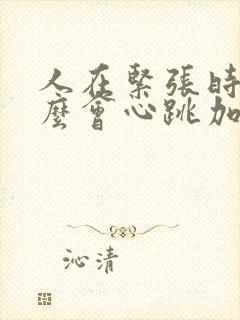 人在緊張時
麼會心跳加
沁清